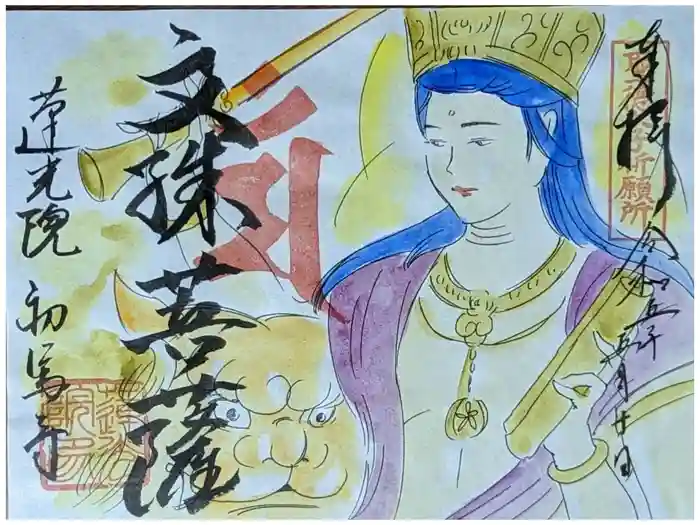 奉拝
令和五年
五月廿日
文殊菩薩
蓮光院 初馬寺
祈願所